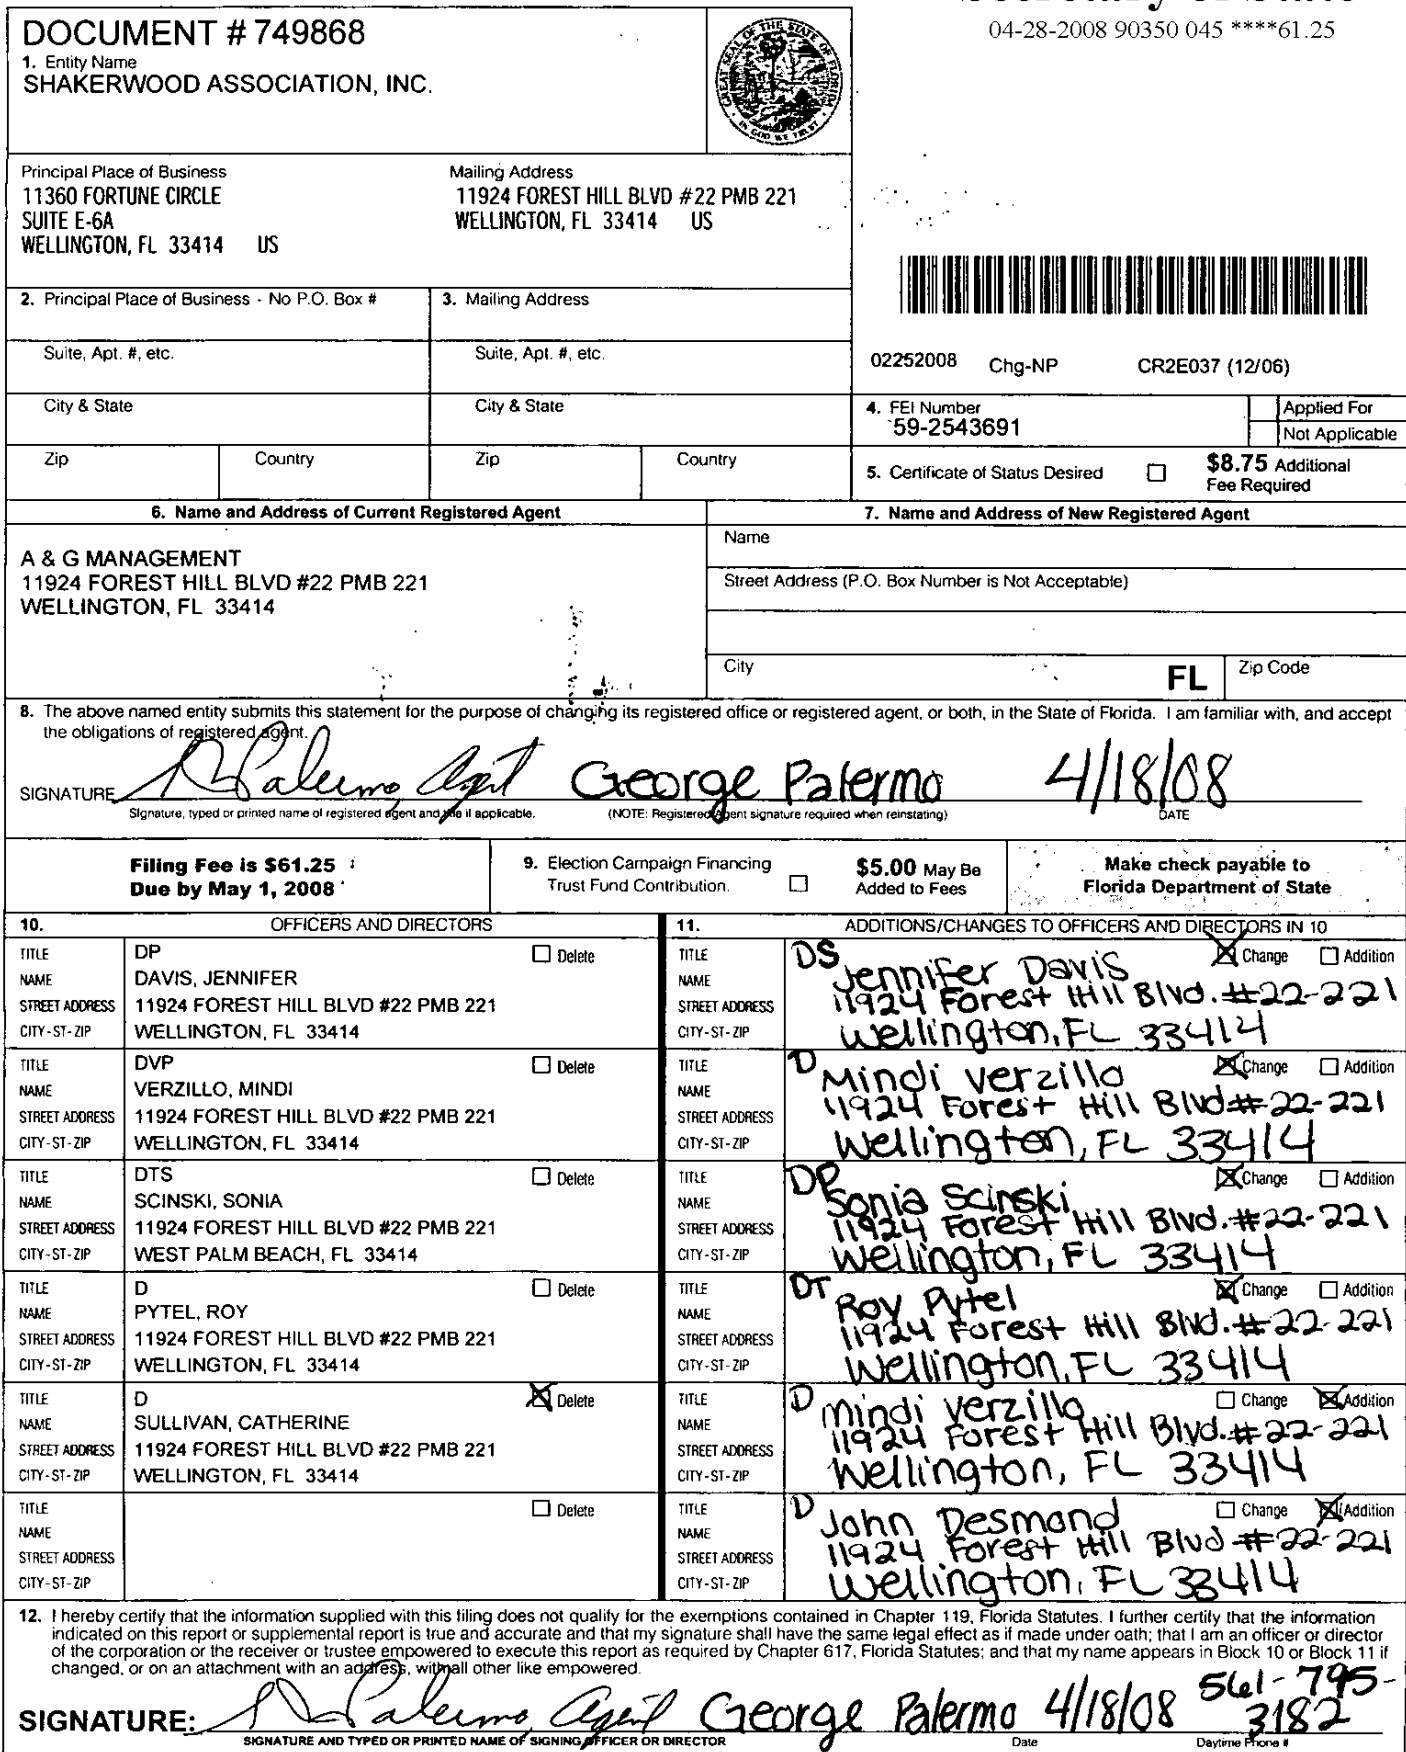 04-28-2008 90350 045 ****61.25
DOCUMENT # 749868
1. Entity Name
SHAKERWOOD ASSOCIATION, INC.
GREAT SEAL OF THE STATE OF FLORIDA
IN GOD WE TRUST
Principal Place of Business
11360 FORTUNE CIRCLE
SUITE E-6A
WELLINGTON, FL 33414 US
Mailing Address
11924 FOREST HILL BLVD #22 PMB 221
WELLINGTON, FL 33414 US
2. Principal Place of Business - No P.O. Box #
3. Mailing Address
Suite, Apt. #, etc.
Suite, Apt. #, etc.
02252008 Chg-NP CR2E037 (12/06)
City & State
City & State
4. FEI Number
59-2543691
Applied For
Not Applicable
Zip
Country
Zip
Country
5. Certificate of Status Desired
$8.75 Additional
Fee Required
6. Name and Address of Current Registered Agent
A & G MANAGEMENT
11924 FOREST HILL BLVD #22 PMB 221
WELLINGTON, FL 33414
7. Name and Address of New Registered Agent
Name
Street Address (P.O. Box Number is Not Acceptable)
City
FL
Zip Code
8. The above named entity submits this statement for the purpose of changing its registered office or registered agent, or both, in the State of Florida. I am familiar with, and accept
the obligations of registered agent.
SIGNATURE Palermo, Agent George Palermo 4/18/08
Signature, typed or printed name of registered agent and title if applicable.
(NOTE: Registered Agent signature required when reinstating)
DATE
Filing Fee is $61.25
Due by May 1, 2008
9. Election Campaign Financing
Trust Fund Contribution.
$5.00 May Be
Added to Fees
Make check payable to
Florida Department of State
10. OFFICERS AND DIRECTORS
11. ADDITIONS/CHANGES TO OFFICERS AND DIRECTORS IN 10
TITLE DP Delete
NAME DAVIS, JENNIFER
STREET ADDRESS 11924 FOREST HILL BLVD #22 PMB 221
CITY-ST-ZIP WELLINGTON, FL 33414
TITLE DS Change Addition
NAME Jennifer Davis
STREET ADDRESS 11924 Forest Hill Blvd. #22-221
CITY-ST-ZIP Wellington, FL 33414
TITLE DVP Delete
NAME VERZILLO, MINDI
STREET ADDRESS 11924 FOREST HILL BLVD #22 PMB 221
CITY-ST-ZIP WELLINGTON, FL 33414
TITLE D Change Addition
NAME Mindi Verzillo
STREET ADDRESS 11924 Forest Hill Blvd #22-221
CITY-ST-ZIP Wellington, FL 33414
TITLE DTS Delete
NAME SCINSKI, SONIA
STREET ADDRESS 11924 FOREST HILL BLVD #22 PMB 221
CITY-ST-ZIP WEST PALM BEACH, FL 33414
TITLE DP Change Addition
NAME Sonia Scinski
STREET ADDRESS 11924 Forest Hill Blvd. #22-221
CITY-ST-ZIP Wellington, FL 33414
TITLE D Delete
NAME PYTEL, ROY
STREET ADDRESS 11924 FOREST HILL BLVD #22 PMB 221
CITY-ST-ZIP WELLINGTON, FL 33414
TITLE DT Change Addition
NAME Roy Pytel
STREET ADDRESS 11924 Forest Hill Blvd. #22-221
CITY-ST-ZIP Wellington, FL 33414
TITLE D Delete
NAME SULLIVAN, CATHERINE
STREET ADDRESS 11924 FOREST HILL BLVD #22 PMB 221
CITY-ST-ZIP WELLINGTON, FL 33414
TITLE D Change Addition
NAME Mindi Verzillo
STREET ADDRESS 11924 Forest Hill Blvd. #22-221
CITY-ST-ZIP Wellington, FL 33414
TITLE Delete
NAME
STREET ADDRESS
CITY-ST-ZIP
TITLE D Change Addition
NAME John Desmond
STREET ADDRESS 11924 Forest Hill Blvd #22-221
CITY-ST-ZIP Wellington, FL 33414
12. I hereby certify that the information supplied with this filing does not qualify for the exemptions contained in Chapter 119, Florida Statutes. I further certify that the information
indicated on this report or supplemental report is true and accurate and that my signature shall have the same legal effect as if made under oath; that I am an officer or director
of the corporation or the receiver or trustee empowered to execute this report as required by Chapter 617, Florida Statutes; and that my name appears in Block 10 or Block 11 if
changed, or on an attachment with an address, with all other like empowered.
SIGNATURE: Palermo, Agent George Palermo 4/18/08 561-795-
3182
SIGNATURE AND TYPED OR PRINTED NAME OF SIGNING OFFICER OR DIRECTOR
Date
Daytime Phone #